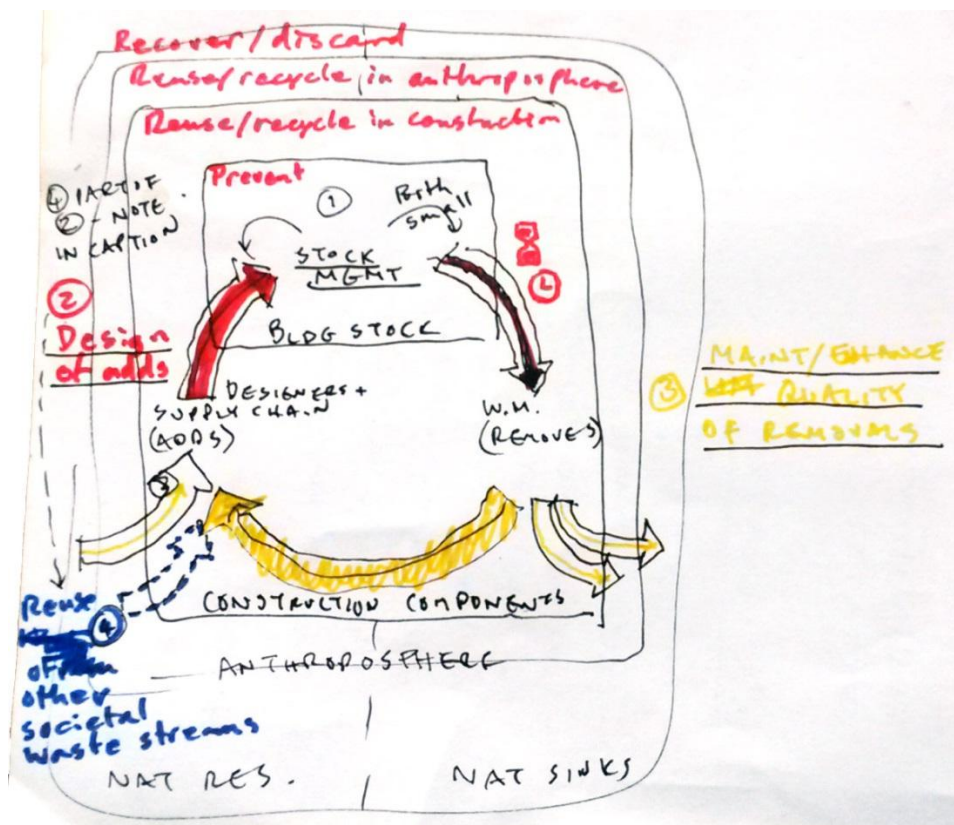 Recover/discard
Reuse/recycle in anthroposphere
Reuse/recycle in constuction
Prevent
④ PART OF
② - NOTE
IN CAPTION
①
Both
small
STOCK
MGMT
②
Design
of adds
②
BLDG STOCK
DESIGNERS +
SUPPLY CHAIN
(ADDS)
W.M.
(REMOVES)
③
MAINT/ENHANCE
QUALITY
OF REMOVALS
CONSTRUCTION COMPONENTS
Reuse
④
other
societal
waste streams
ANTHROPOSPHERE
NAT RES.
NAT SINKS